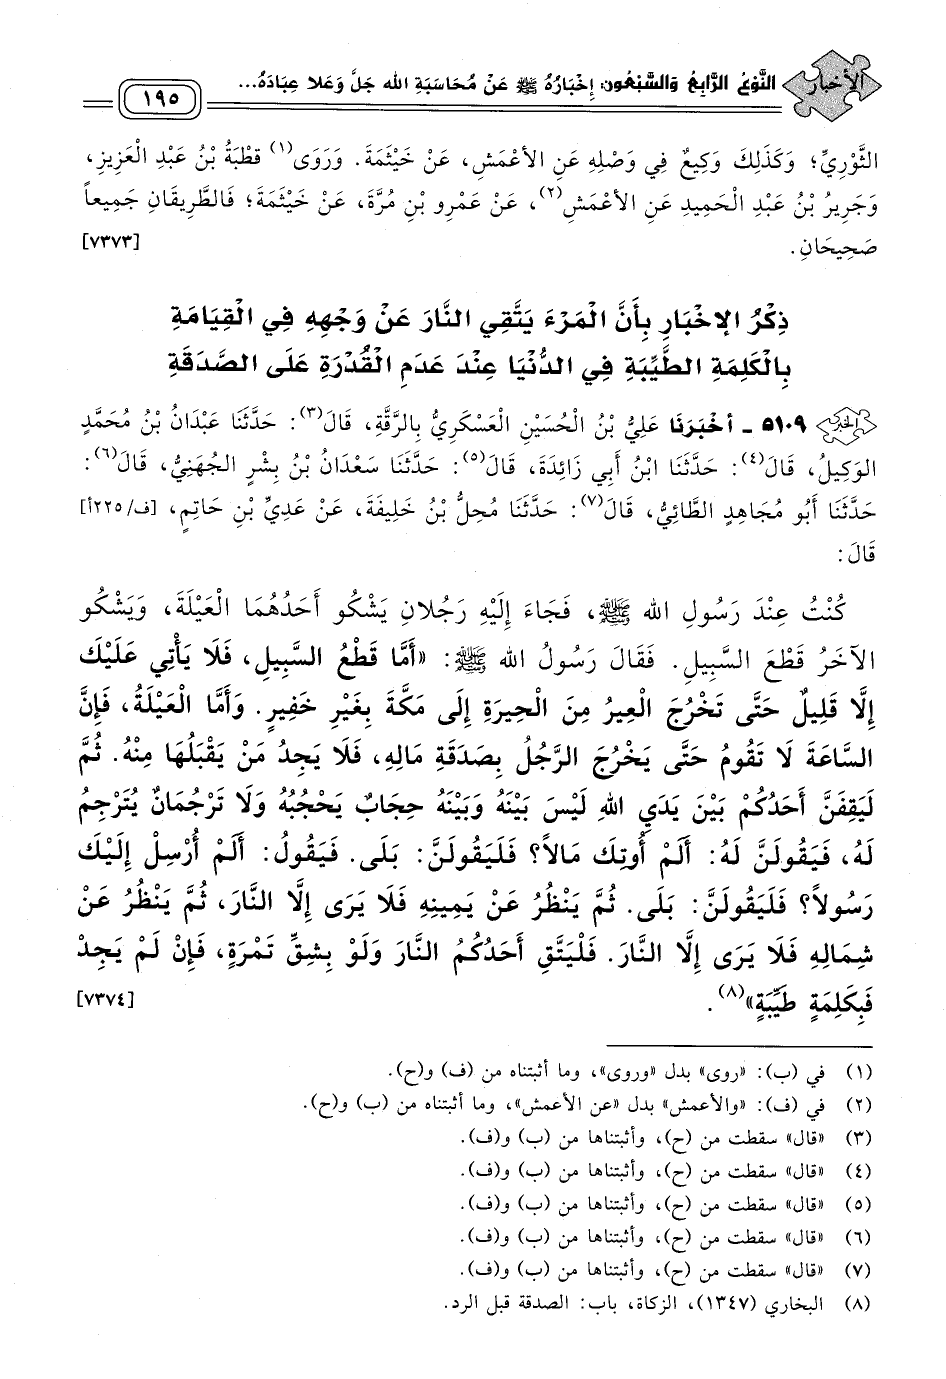 الأخبار النَّوْعُ الرَّابِعُ وَالسَّبْعُونَ: إِخْبَارُهُ ﷺ عَنْ مُحَاسَبَةِ اللهِ جَلَّ وَعَلا عِبَادَهُ... ١٩٥
الثَّوْرِيِّ؛ وَكَذَلِكَ وَكِيعٌ فِي وَصْلِهِ عَنِ الأَعْمَشِ، عَنْ خَيْثَمَةَ. وَرَوَى(١) قطْبَةُ بْنُ عَبْدِ الْعَزِيزِ،
وَجَرِيرُ بْنُ عَبْدِ الْحَمِيدِ عَنِ الأَعْمَشِ(٢)، عَنْ عَمْرِو بْنِ مُرَّةَ، عَنْ خَيْثَمَةَ؛ فَالطَّرِيقَانِ جَمِيعاً
صَحِيحَانِ. [٧٣٧٣]
ذِكْرُ الإخْبَارِ بِأَنَّ الْمَرْءَ يَتَّقِي النَّارَ عَنْ وَجْهِهِ فِي الْقِيَامَةِ
بِالْكَلِمَةِ الطَّيِّبَةِ فِي الدُّنْيَا عِنْدَ عَدَمِ الْقُدْرَةِ عَلَى الصَّدَقَةِ
الخبر ٥١٠٩ - أخْبَرَنَا عَلِيُّ بْنُ الْحُسَيْنِ الْعَسْكَرِيُّ بِالرَّقَّةِ، قَالَ(٣): حَدَّثَنَا عَبْدَانُ بْنُ مُحَمَّدٍ
الوَكِيلُ، قَالَ(٤): حَدَّثَنَا ابْنُ أَبِي زَائِدَةَ، قَالَ(٥): حَدَّثَنَا سَعْدَانُ بْنُ بِشْرٍ الجُهَنِيُّ، قَالَ(٦):
حَدَّثَنَا أَبُو مُجَاهِدٍ الطَّائِيُّ، قَالَ(٧): حَدَّثَنَا مُحِلُّ بْنُ خَلِيفَةَ، عَنْ عَدِيِّ بْنِ حَاتِمٍ، [ف/٢٢٥أ]
قَالَ:
كُنْتُ عِنْدَ رَسُولِ اللهِ ﷺ، فَجَاءَ إِلَيْهِ رَجُلانِ يَشْكُو أَحَدُهُمَا الْعَيْلَةَ، وَيَشْكُو
الآخَرُ قَطْعَ السَّبِيلِ. فَقَالَ رَسُولُ اللهِ ﷺ: «أَمَّا قَطْعُ السَّبِيلِ، فَلَا يَأْتِي عَلَيْكَ
إِلَّا قَلِيلٌ حَتَّى تَخْرُجَ الْعِيرُ مِنَ الْحِيرَةِ إِلَى مَكَّةَ بِغَيْرِ خَفِيرٍ. وَأَمَّا الْعَيْلَةُ، فَإِنَّ
السَّاعَةَ لَا تَقُومُ حَتَّى يَخْرُجَ الرَّجُلُ بِصَدَقَةِ مَالِهِ، فَلَا يَجِدُ مَنْ يَقْبَلُهَا مِنْهُ. ثُمَّ
لَيَقِفَنَّ أَحَدُكُمْ بَيْنَ يَدَيِ اللهِ لَيْسَ بَيْنَهُ وَبَيْنَهُ حِجَابٌ يَحْجُبُهُ وَلَا تَرْجُمَانٌ يُتَرْجِمُ
لَهُ، فَيَقُولَنَّ لَهُ: أَلَمْ أُوتِكَ مَالاً؟ فَلَيَقُولَنَّ: بَلَى. فَيَقُولُ: أَلَمْ أُرْسِلْ إِلَيْكَ
رَسُولاً؟ فَلَيَقُولَنَّ: بَلَى. ثُمَّ يَنْظُرُ عَنْ يَمِينِهِ فَلَا يَرَى إِلَّا النَّارَ، ثُمَّ يَنْظُرُ عَنْ
شِمَالِهِ فَلَا يَرَى إِلَّا النَّارَ. فَلْيَتَّقِ أَحَدُكُمُ النَّارَ وَلَوْ بِشِقِّ تَمْرَةٍ، فَإِنْ لَمْ يَجِدْ
فَبِكَلِمَةٍ طَيِّبَةٍ»(٨). [٧٣٧٤]
(١) في (ب): «روى» بدل «وروى»، وما أثبتناه من (ف) و(ح).
(٢) في (ف): «والأعمش» بدل «عن الأعمش»، وما أثبتناه من (ب) و(ح).
(٣) «قال» سقطت من (ح)، وأثبتناها من (ب) و(ف).
(٤) «قال» سقطت من (ح)، وأثبتناها من (ب) و(ف).
(٥) «قال» سقطت من (ح)، وأثبتناها من (ب) و(ف).
(٦) «قال» سقطت من (ح)، وأثبتناها من (ب) و(ف).
(٧) «قال» سقطت من (ح)، وأثبتناها من (ب) و(ف).
(٨) البخاري (١٣٤٧)، الزكاة، باب: الصدقة قبل الرد.